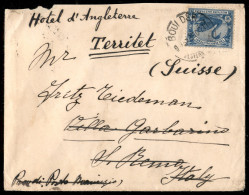 Hotel d'Angleterre
Territet
(Suisse)
Mr
Fritz Tiedeman
Villa Garbarino
S. Remo
Italy